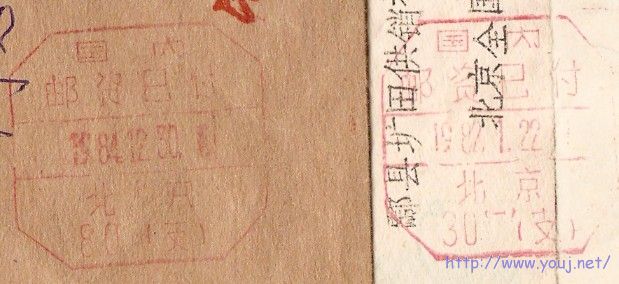 国内
邮资已付
1984.12.30.
北京
30(支)
酃县圹田供銷
北京全国
国内
邮资已付
1987.1.22
北京
30(支)
http://www.youj.net/